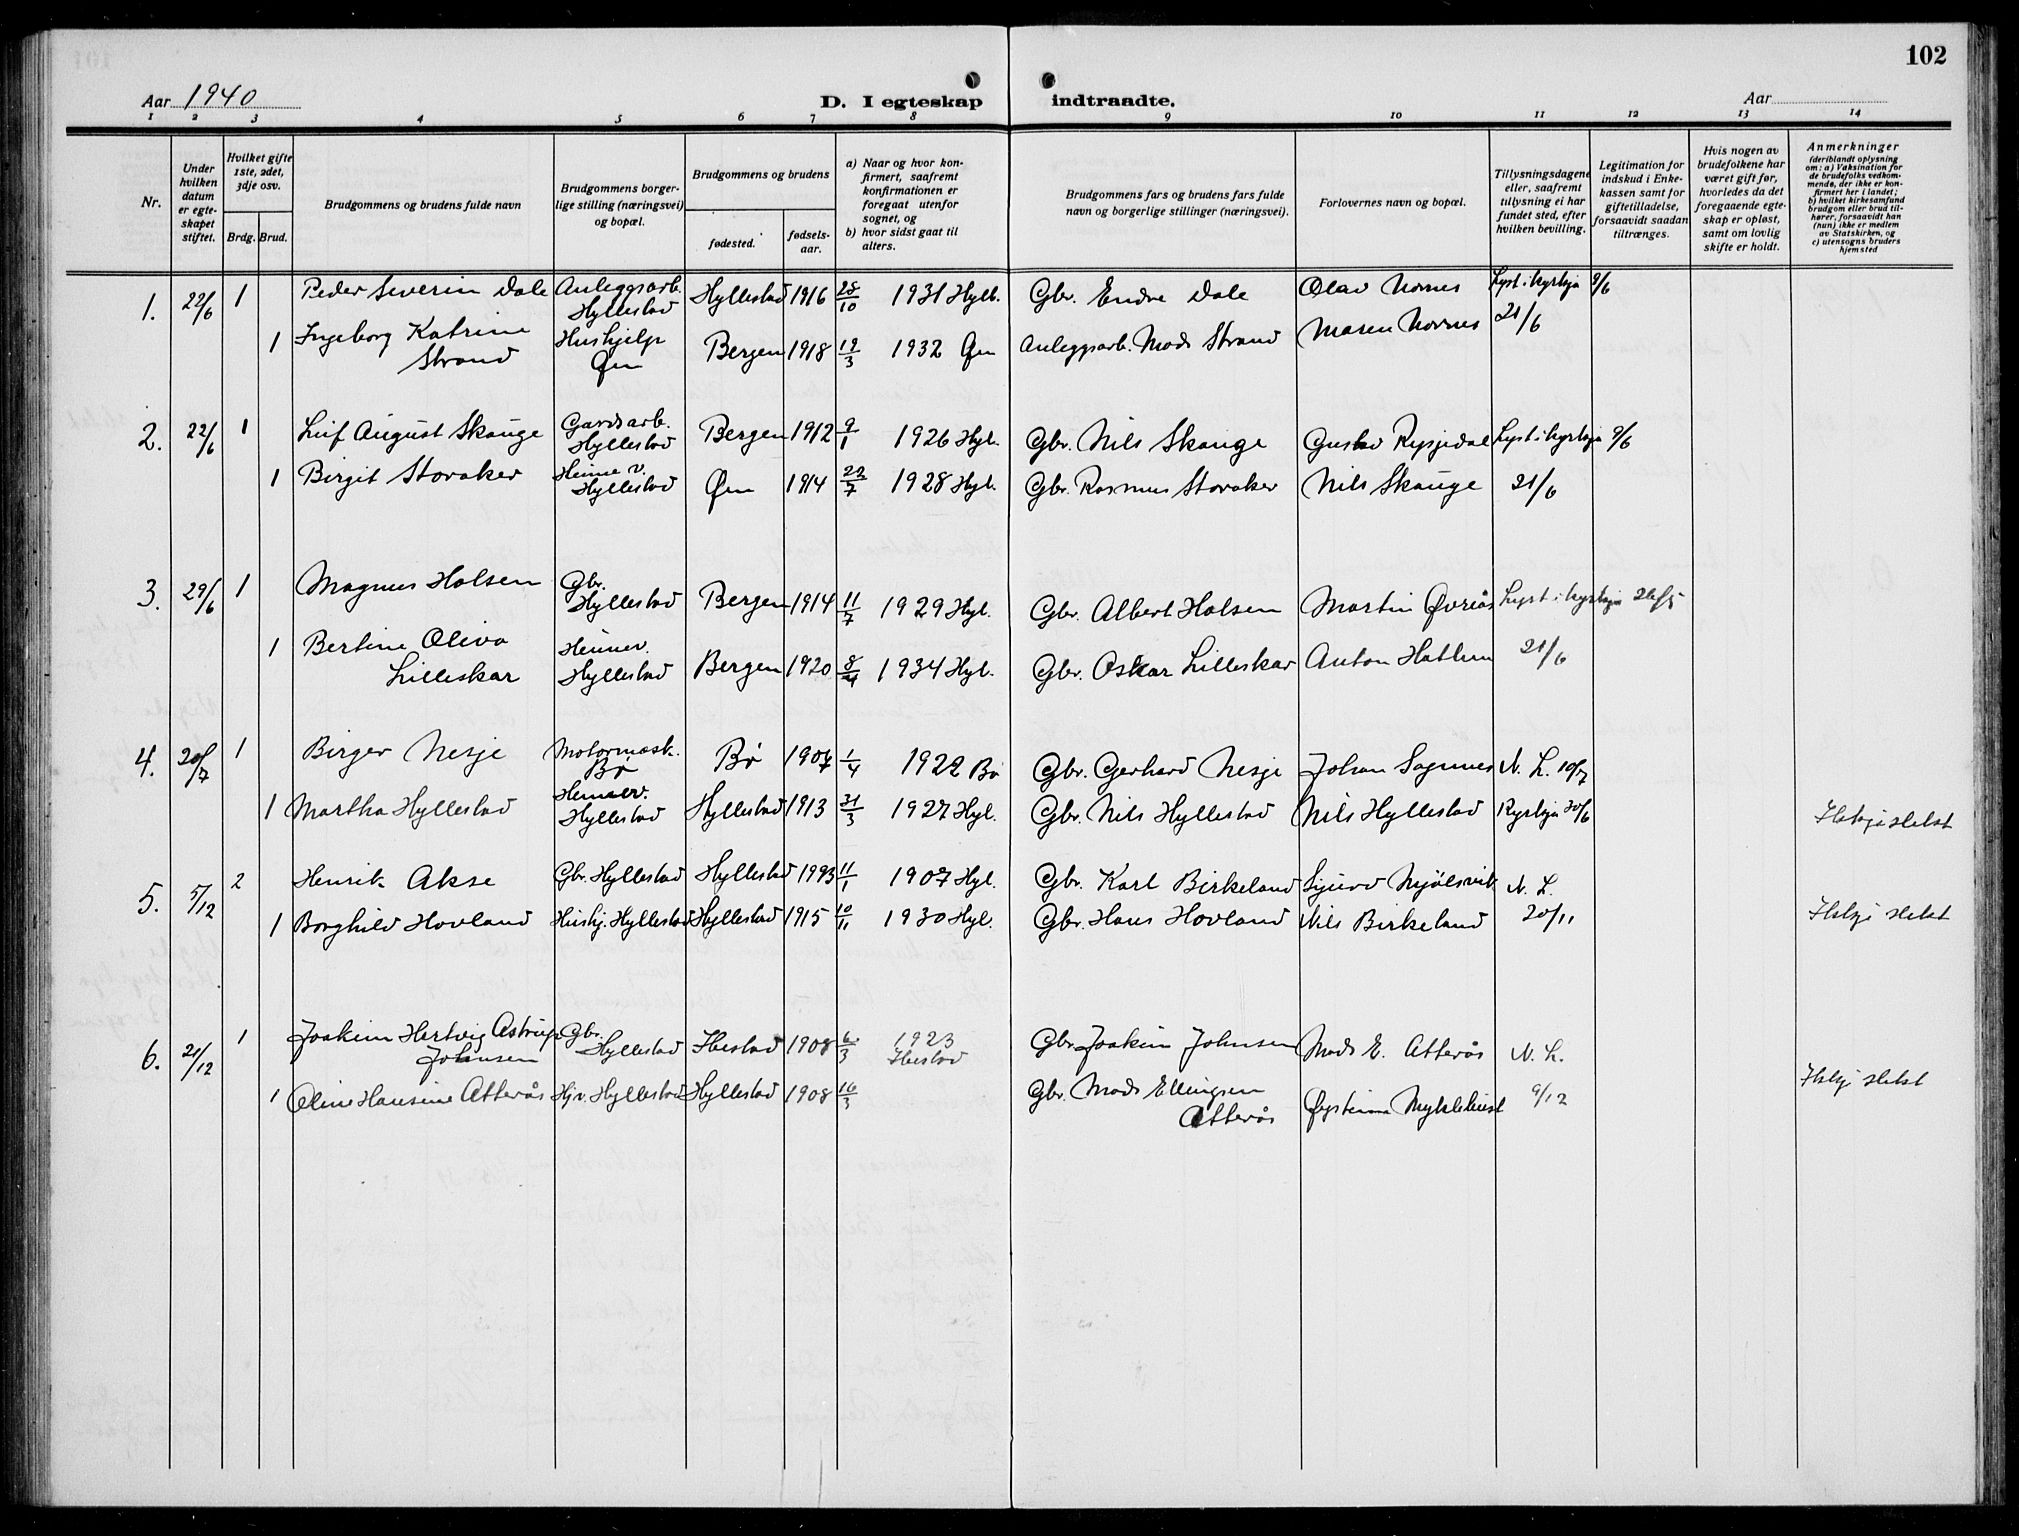 102
Aar 1940
D. I egteskap indtraadte.
Aar
1 2 3 4 5 6 7 8 9 10 11 12 13 14
Nr.
Under hvilken datum er egteskapet stiftet.
Hvilket gifte 1ste, 2det, 3dje osv.
Brdg. Brud.
Brudgommens og brudens fulde navn
Brudgommens borgerlige stilling (næringsvei) og bopæl.
Brudgommens og brudens
fødested.
fødselsaar.
a) Naar og hvor konfirmert, saafremt konfirmationen er foregaat utenfor sognet, og
b) hvor sidst gaat til alters.
Brudgommens fars og brudens fars fulde navn og borgerlige stillinger (næringsvei).
Forlovernes navn og bopæl.
Tillysningsdagene eller, saafremt tillysning ei har fundet sted, efter hvilken bevilling.
Legitimation for indskud i Enkekassen samt for giftetilladelse, forsaavidt saadan tiltrænges.
Hvis nogen av brudefolkene har været gift før, hvorledes da det foregaaende egteskap er opløst, samt om lovlig skifte er holdt.
Anmerkninger (deriblandt oplysning om: a) Vaksination for de brudefolks vedkommende, der ikke er konfirmert her i landet; b) hvilket kirkesamfund brudgom eller brud tilhører, forsaavidt han (hun) ikke er medlem av Statskirken, og c) utensogns bruders hjemsted
1. 22/6 1 Peder Severin Dale Anleggsarb. Hyllestad Hyllestad 1916 25/10 1931 Hyll. Gbr. Endre Dale Olav Nornes Lyst i kyrkja 9/6
1 Ingeborg Katrine Strand Hushjelp Øen Bergen 1918 19/3 1932 Øen Anleggsarb. Mads Strand Maren Nornes 21/6
2. 22/6 1 Leif August Skauge Gardsarb. Hyllestad Bergen 1912 9/1 1926 Hyl. Gbr. Nils Skauge Gustav Rysjedal Lyst i kyrkja 9/6
1 Birgit Storaker Heime v. Hyllestad Øen 1914 22/7 1928 Hyl. Gbr. Rasmus Storaker Nils Skauge 21/6
3. 29/6 1 Magnus Holsen Gbr. Hyllestad Bergen 1914 11/7 1929 Hyl. Gbr. Albert Holsen Martin Øvreås Lyst i kyrkja 26/5
1 Bertine Oliva Lilleskar Heimev. Hyllestad Bergen 1920 1934 Hyl. Gbr. Oskar Lilleskar Anton Hatlem 21/6
4. 20/7 1 Birger Nesje Motormask. Bø Bø 1907 1/4 1922 Bø Gbr. Gerhard Nesje Johan Sognnes N. L. 10/7
1 Martha Hyllestad Heimev. Hyllestad Hyllestad 1913 31/3 1927 Hyl. Gbr. Nils Hyllestad Nils Hyllestad Kyrkja 30/6
5. 5/12 2 Henrik Akse Gbr. Hyllestad Hyllestad 1993 11/1 1907 Hyl. Gbr. Karl Birkeland Sjurd Mjølsvik N. L.
1 Borghild Hovland Hushj. Hyllestad Hyllestad 1915 10/11 1930 Hyl. Gbr. Hans Hovland Nils Birkeland 20/11
6. 21/12 1 Joakim Hertvig Astrup Johnsen Gbr. Hyllestad Ibestad 1908 6/3 1923 Ibestad Gbr. Joakim Johnsen Mads E. Atterås N. L.
1 Oline Hansine Atterås Hjv. Hyllestad Hyllestad 1908 16/3 Gbr. Mads Ellingsen Atterås Øysteinne Myklebust 9/12